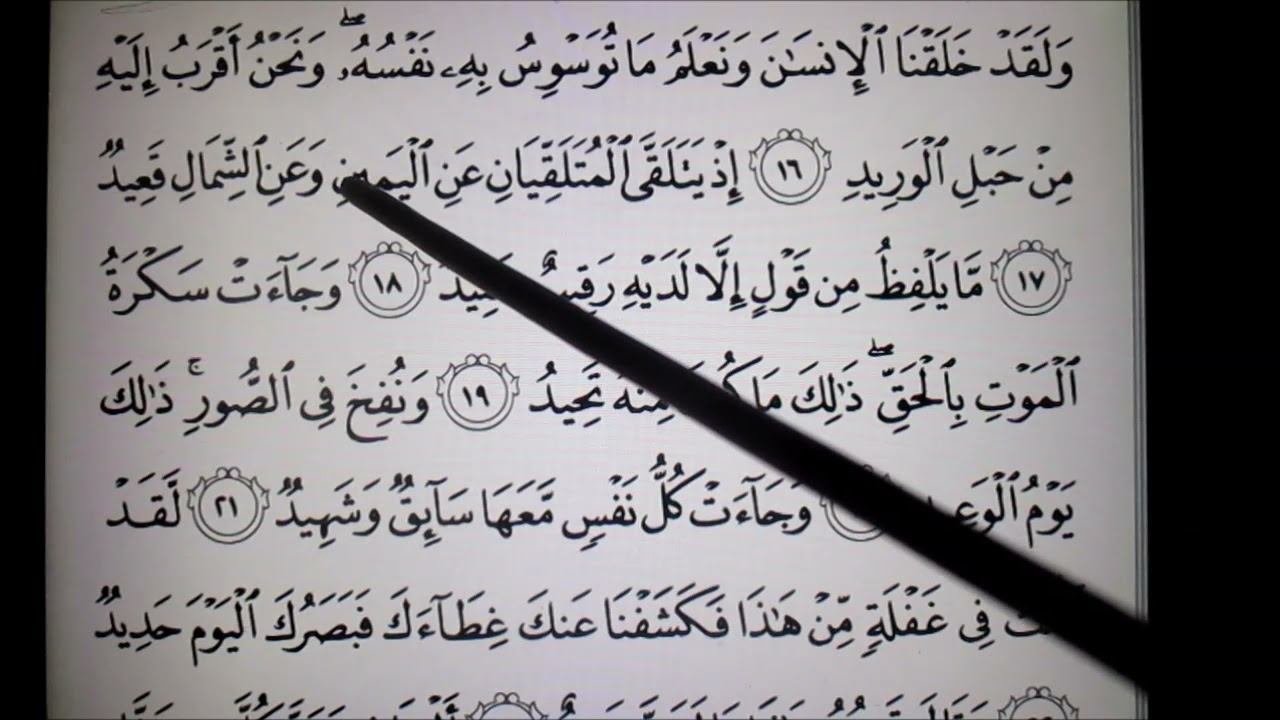 وَلَقَدْ خَلَقْنَا ٱلْإِنسَٰنَ وَنَعْلَمُ مَا تُوَسْوِسُ بِهِۦ نَفْسُهُۥ ۖ وَنَحْنُ أَقْرَبُ إِلَيْهِ
مِنْ حَبْلِ ٱلْوَرِيدِ ١٦ إِذْ يَتَلَقَّى ٱلْمُتَلَقِّيَانِ عَنِ ٱلْيَمِينِ وَعَنِ ٱلشِّمَالِ قَعِيدٌ
١٧ مَّا يَلْفِظُ مِن قَوْلٍ إِلَّا لَدَيْهِ ١٨ وَجَآءَتْ سَكْرَةُ
ٱلْمَوْتِ بِٱلْحَقِّ ۖ ذَٰلِكَ مَا مِنْهُ تَحِيدُ ١٩ وَنُفِخَ فِى ٱلصُّورِ ۚ ذَٰلِكَ
يَوْمُ وَجَآءَتْ كُلُّ نَفْسٍ مَّعَهَا سَآئِقٌ وَشَهِيدٌ ٢١ لَّقَدْ
فِى غَفْلَةٍ مِّنْ هَٰذَا فَكَشَفْنَا عَنكَ غِطَآءَكَ فَبَصَرُكَ ٱلْيَوْمَ حَدِيدٌ